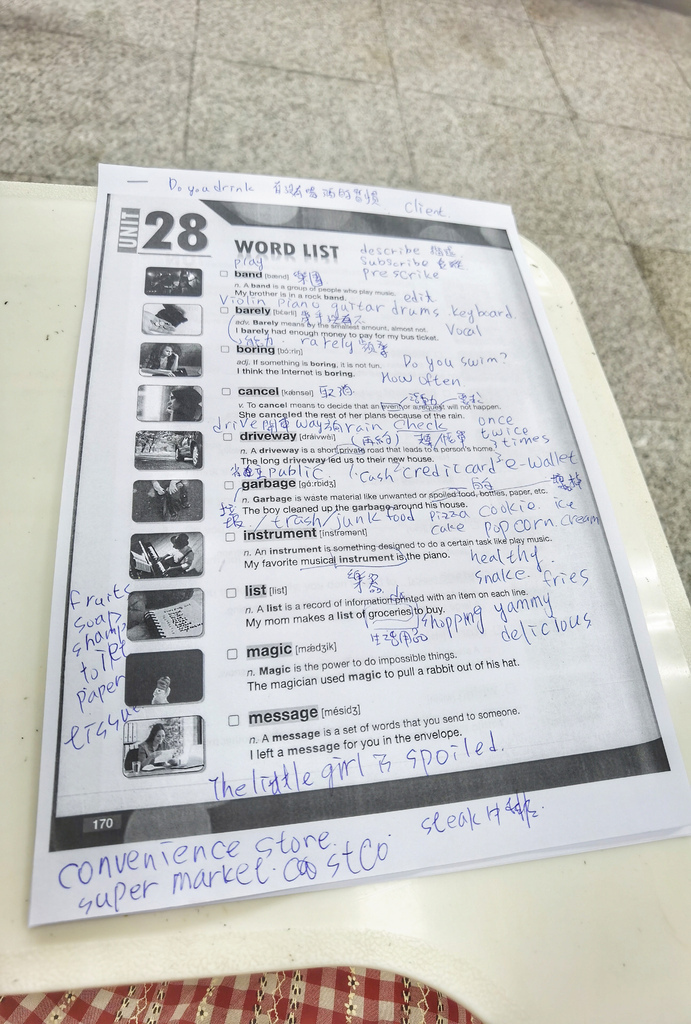 一 Do you drink
client
UNIT 28 WORD LIST
describe
play Subscribe
prescrike
band [bænd] 樂團
n. A band is a group of people who play music.
My brother is in a rock band. edit
Violin piano guitar drums keyboard
barely [bɛ́rli] 幾乎沒有
adv. Barely means by the smallest amount, almost not. Vocal
I barely had enough money to pay for my bus ticket.
rarely
boring [bɔ́rɪŋ] Do you swim?
adj. If something is boring, it is not fun.
I think the Internet is boring. How often
cancel [kænsəl] 取消
v. To cancel means to decide that an event or a request will not happen.
She canceled the rest of her plans because of the rain.
drive 開車 way 路 rain check once
driveway [dráivwèi] twice
n. A driveway is a short, private road that leads to a person's home. times
The long driveway led us to their new house.
public cash credit card e-wallet
garbage [gɑ́rbidʒ]
n. Garbage is waste material like unwanted or spoiled food, bottles, paper, etc.
The boy cleaned up the garbage around his house.
/ trash / junk food pizza cookie. ice
cake popcorn. cream
instrument [ínstrəmənt]
n. An instrument is something designed to do a certain task like play music.
My favorite musical instrument is the piano. healthy
樂器 snake. fries
list [list]
n. A list is a record of information printed with an item on each line.
My mom makes a list of groceries to buy.
生活用品 shopping yammy
delicious
fruits
soap
shamp
toilet
paper
tissue
magic [mǽdʒik]
n. Magic is the power to do impossible things.
The magician used magic to pull a rabbit out of his hat.
message [mésidʒ]
n. A message is a set of words that you send to someone.
I left a message for you in the envelope.
The little girl is spoiled.
170
steak 牛排.
convenience store.
super market. CostCo